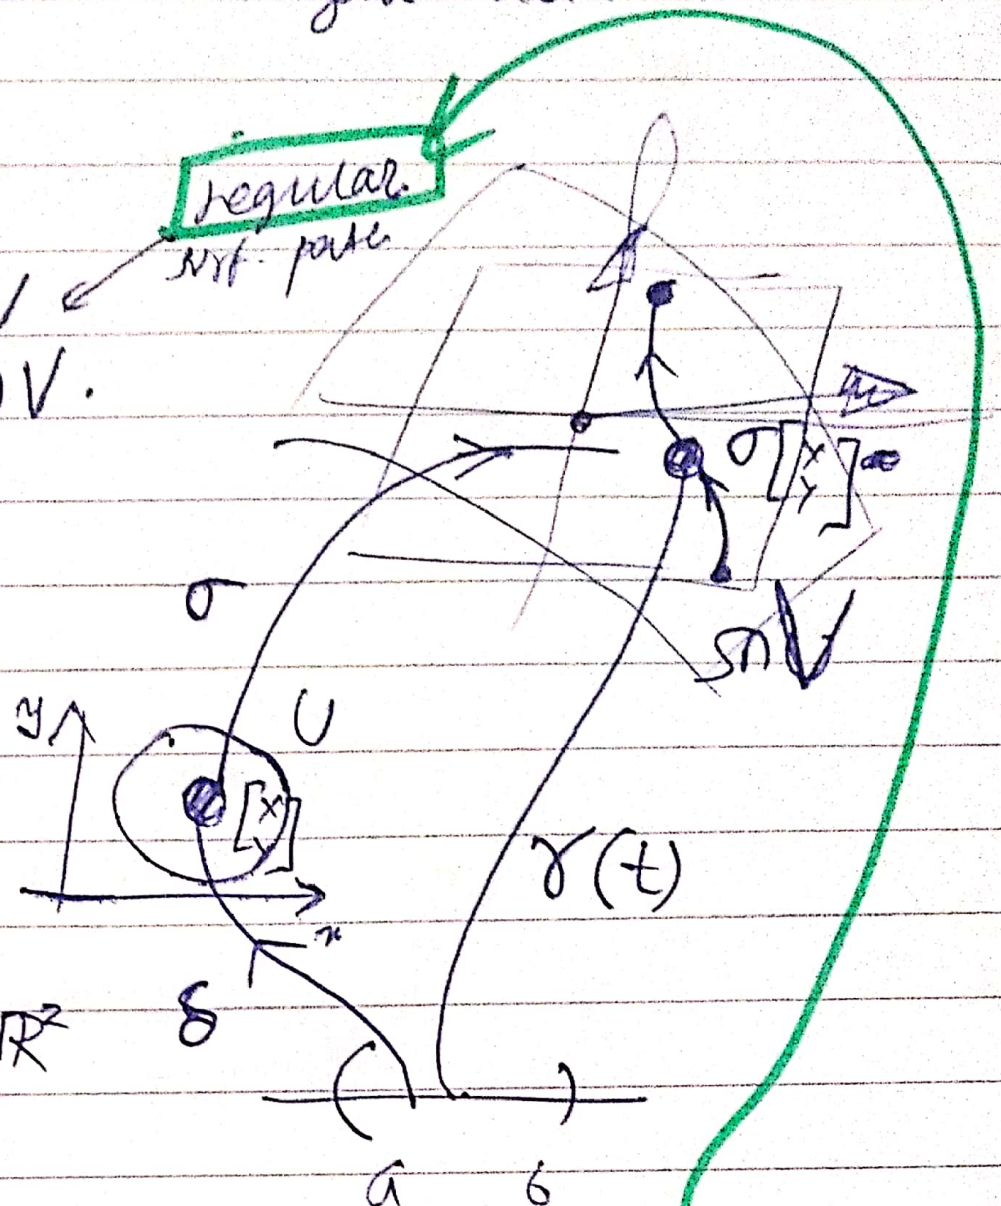 regular
srf. patch
V.
σ[x y]
σ
S∩V
y
U
[x y]
γ(t)
x
ℝ²
δ
( )
a b